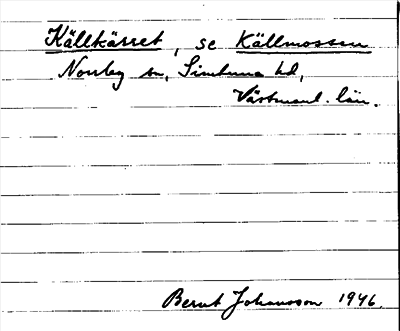 Källkärret, se Källmossen
Norrby sn, Simtuna hd,
Västmanl. län.
Bernt Johansson 1946.